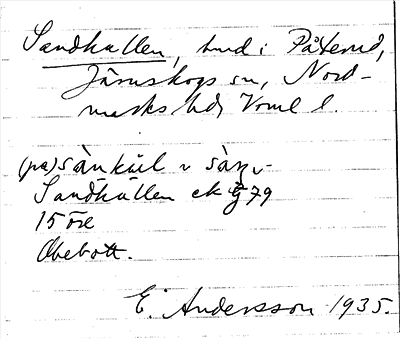 Sandkullen, hmd i Påterud,
Järnskogs sn, Nord-
marks hd, Vrml l.
(pa) sànkúl
Sandkullen ek 79
15 öre
Obebott.
E. Andersson 1935.